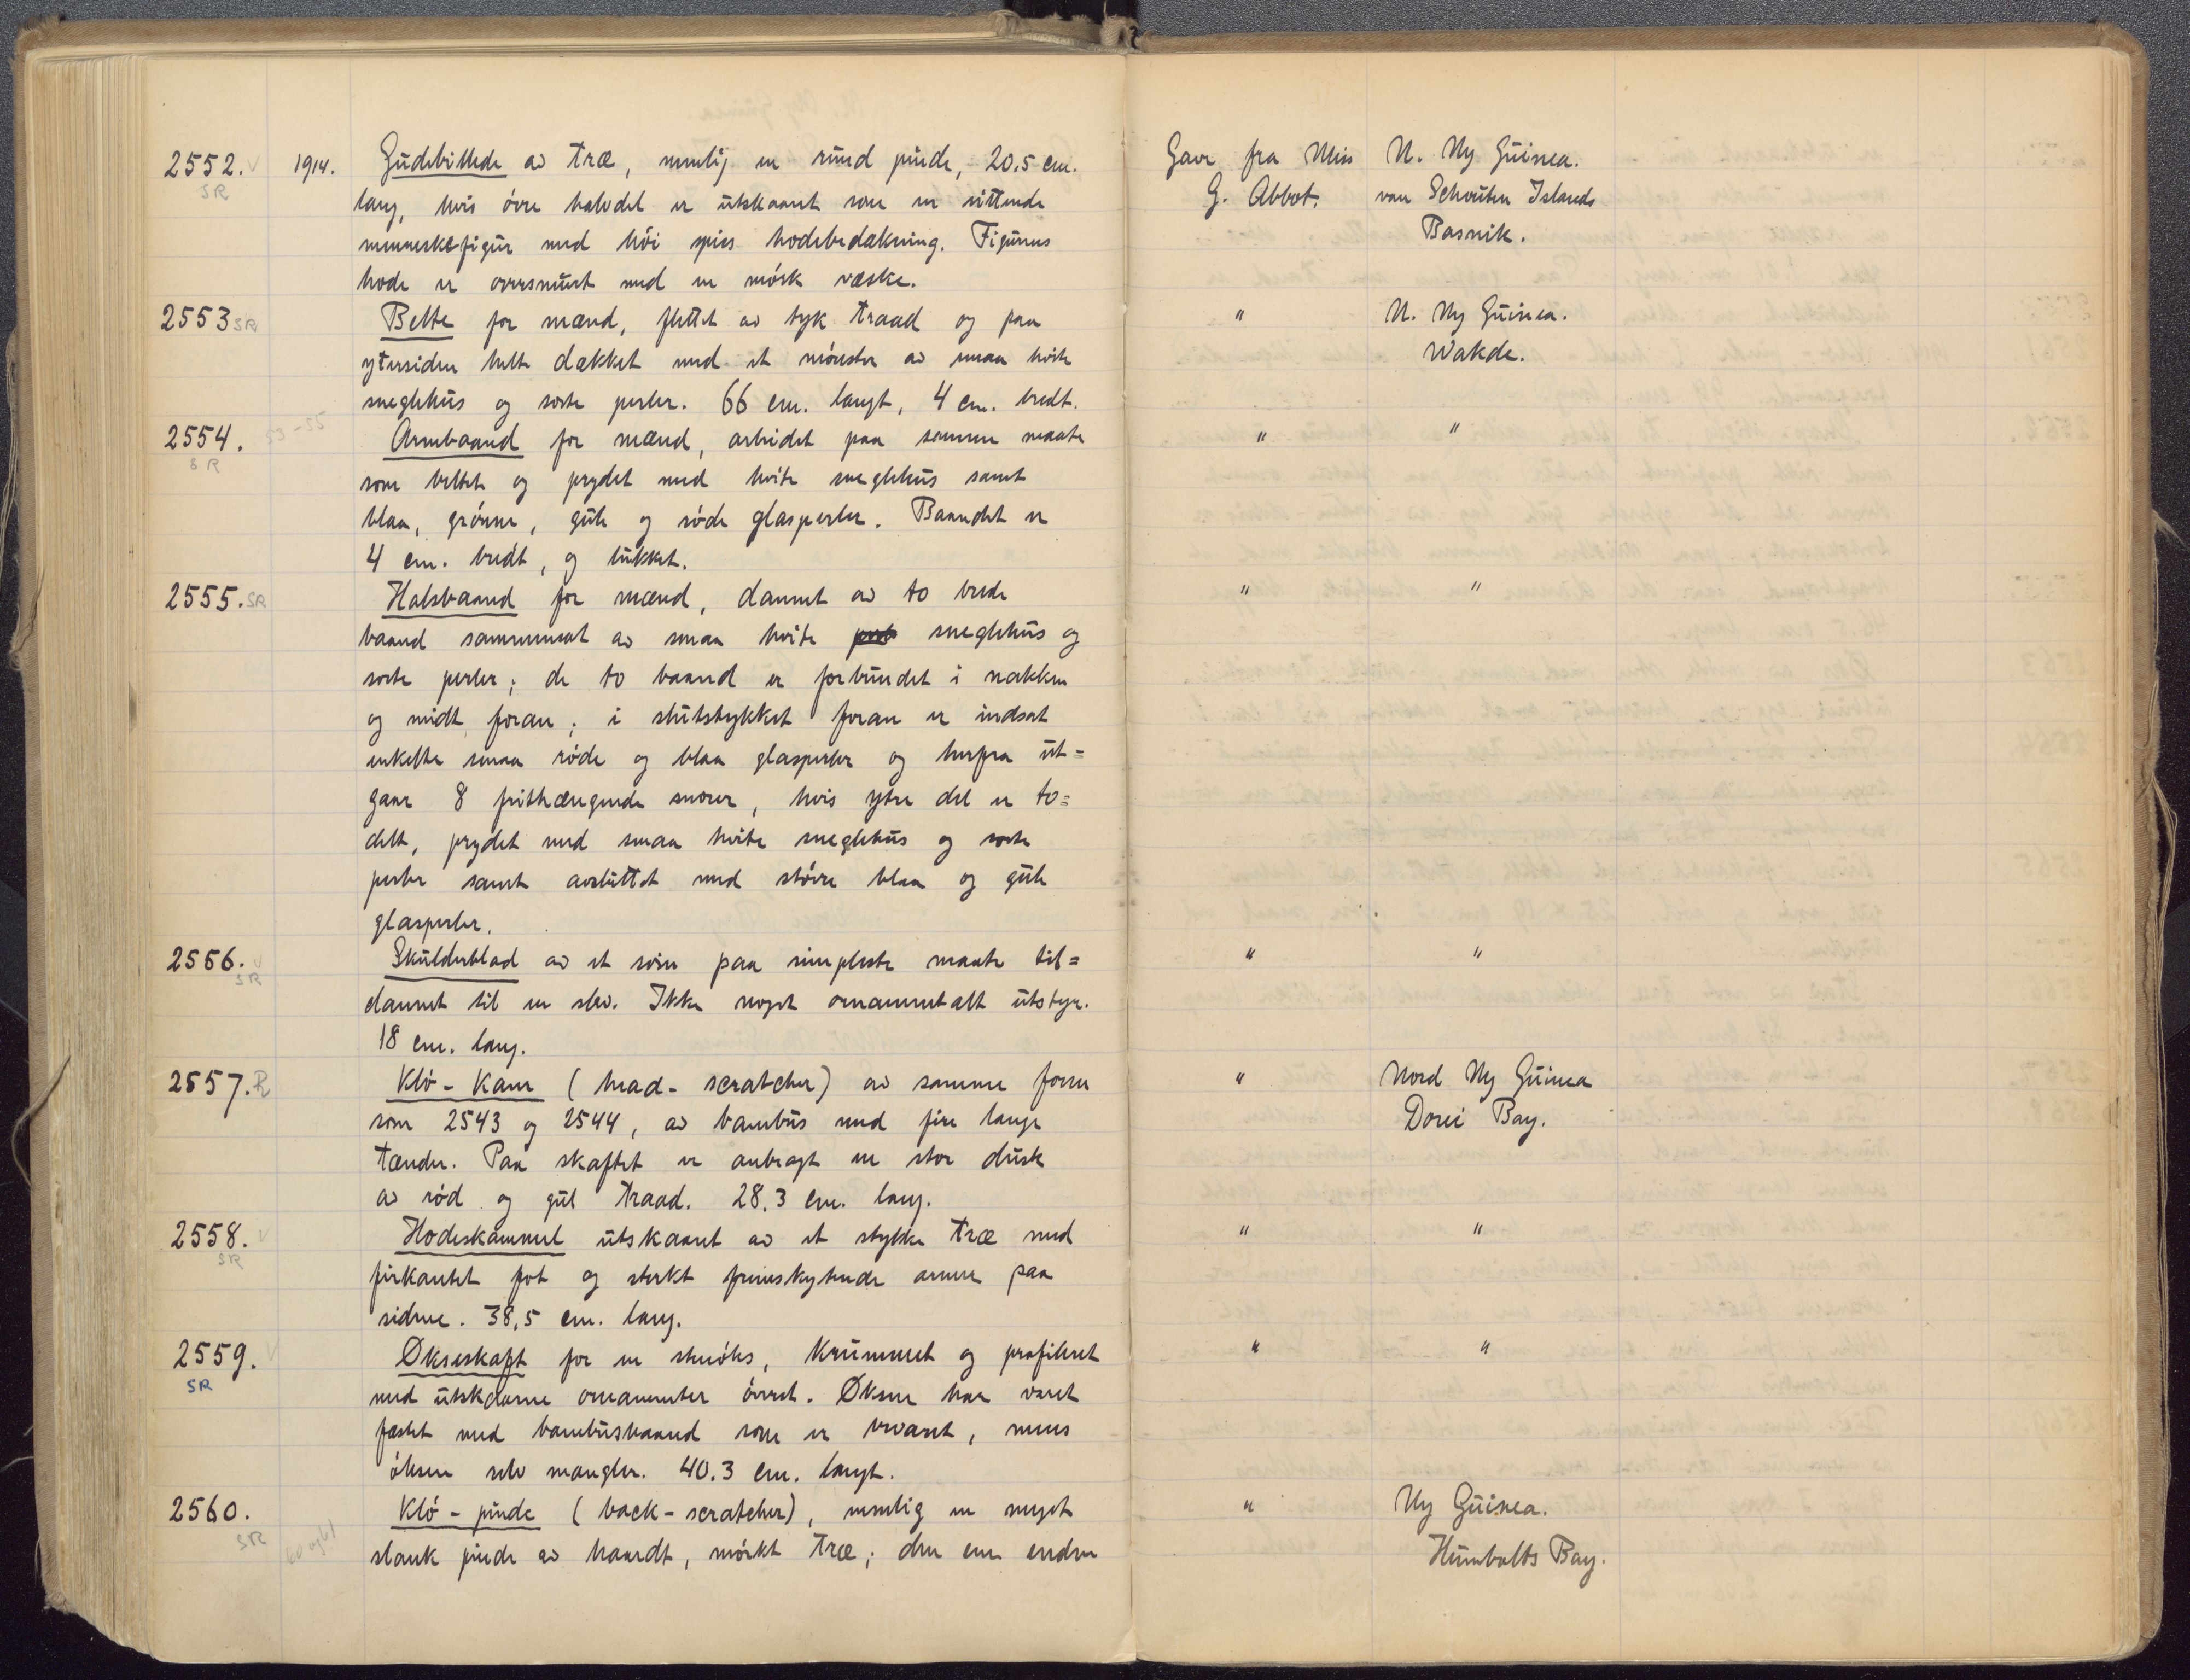 2552. 1914. Gudebillede av træ, nemlig en rund pinde, 20.5 cm. Gave fra Miss N. Ny Guinea.
SR lang, hvis övre halvdel er utskaaret som en sittende G. Abbot. van Schouten Islands
menneskefigur med höi spids hodebedækning. Figurens Bosnik.
hode er oversmurt med en mörk væske.
2553 SR Belte for mænd, flettet av tyk traad og paa " N. Ny Guinea.
ytersiden helt dækket med et mönster av smaa hvite Wakde.
sneglehus og sorte perler. 66 cm. langt, 4 cm. bredt.
2554. 53-55 Armbaand for mænd, arbeidet paa samme maate " "
SR som beltet og prydet med hvite sneglehus samt
blaa, grönne, gule og röde glasperler. Baandet er
4 cm. bredt, og lukket.
2555. SR Halsbaand for mænd, dannet av to brede " "
baand sammensat av smaa hvite sneglehus og
sorte perler; de to baand er forbundet i nakken
og midt foran; i slutstykket foran er indsat
enkelte smaa röde og blaa glasperler og herfra ut=
gaar 8 frithængende snorer, hvis ytre del er to=
delt, prydet med smaa hvite sneglehus og sorte
perler samt avsluttet med större blaa og gule
glasperler.
2556. SR Skulderblad av et svin paa simpleste maate til= " "
dannet til en ske. Ikke noget ornamentalt utstyr.
18 cm. lang.
2557. R Klö-Kam (head-scratcher) av samme form " Nord Ny Guinea
som 2543 og 2544, av bambus med fire lange Dorei Bay.
tænder. Paa skaftet er anbragt en stor dusk
av röd og gul traad. 28.3 cm. lang.
2558. Hodeskammel utskaaret av et stykke træ med " "
SR firkantet fot og sterkt fremskytende arme paa
siderne. 38,5 cm. lang.
2559. Økseskaft for en stenöks, krummet og profileret " "
SR med utskaarne ornamenter överst. Øksen har været
fæstet med bambusbaand som er bevaret, mens
öksen selv mangler. 40.3 cm. langt.
2560. Klö-pinde (back-scratcher), nemlig en meget " Ny Guinea.
SR 60 og 61 slank pinde av haardt, mörkt træ; den ene enden Humbolts Bay.